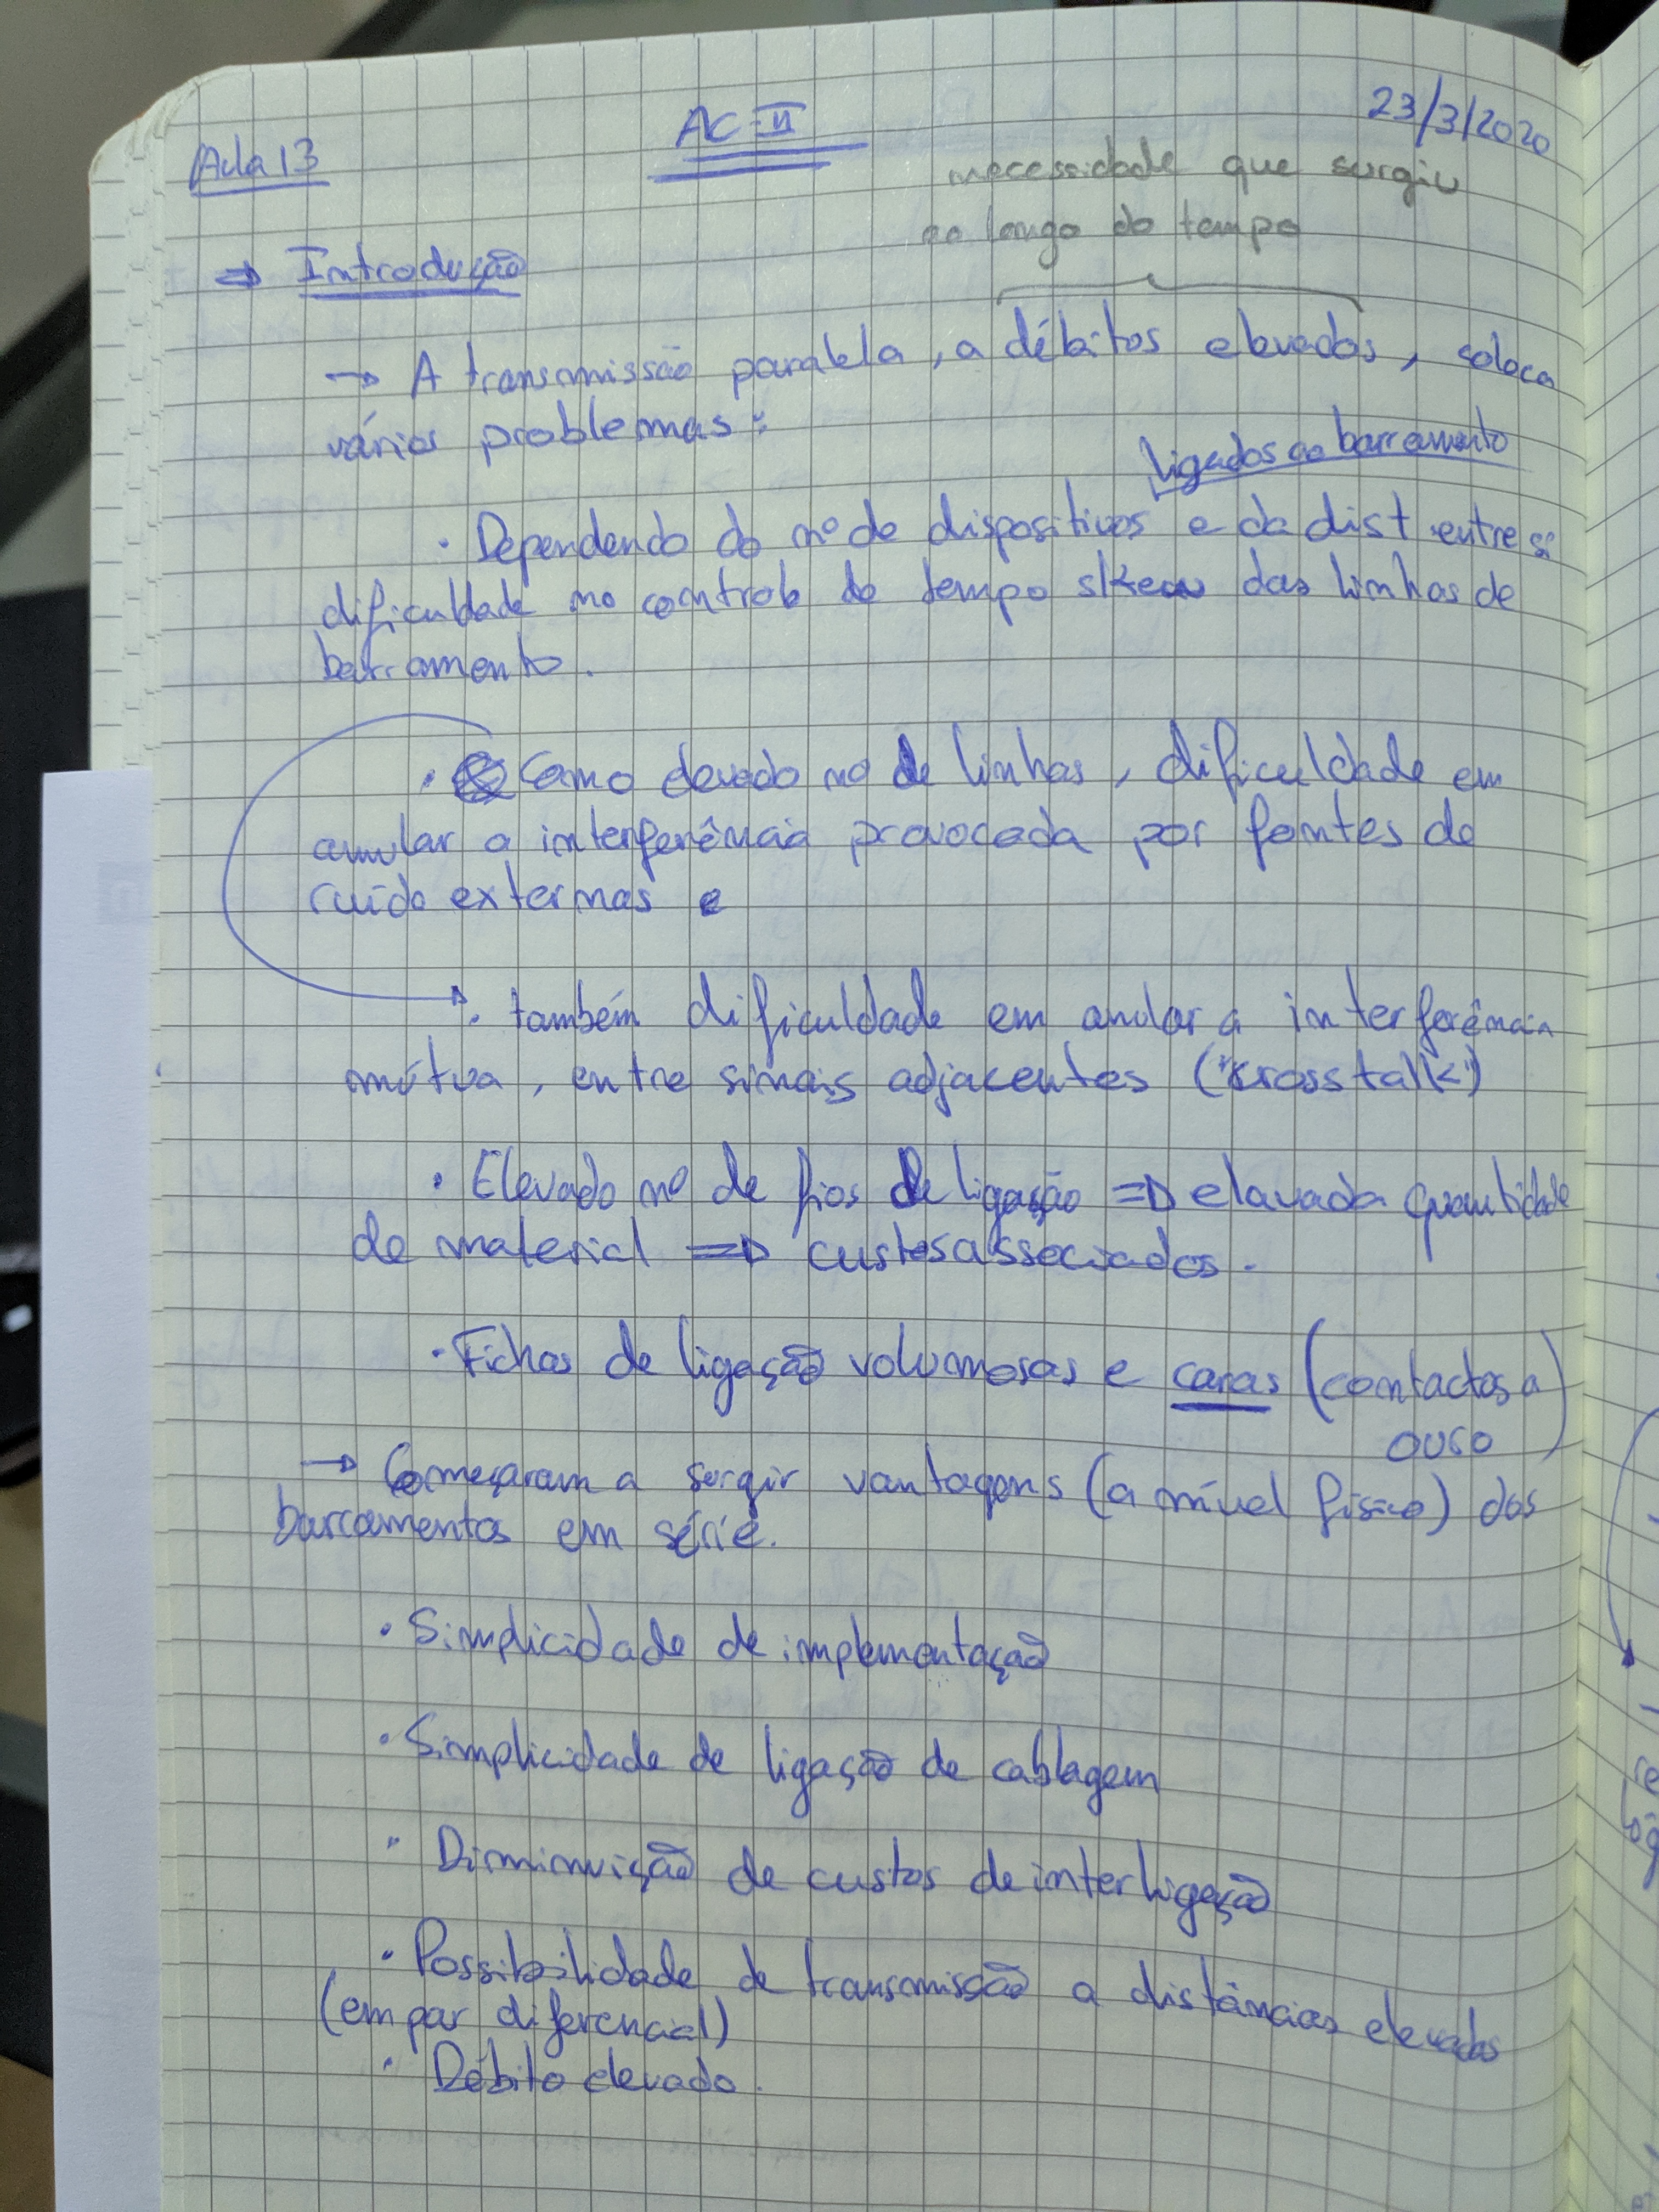 Aula 13
AC-II
23/3/2020
necessidade que surgiu
ao longo do tempo
⇒ Introdução
→ A transmissão paralela, a débitos elevados, coloca
vários problemas:
ligados ao barramento
· Dependendo do nº de dispositivos e da dist entre si
dificuldade no controlo do tempo skew das linhas de
barramento.
· Como elevado nº de linhas, dificuldade em
anular a interferência provocada por fontes de
ruído externas e
· também dificuldade em anular a interferência
mútua, entre sinais adjacentes ("crosstalk")
· Elevado nº de fios de ligação ⇒ elavada quantidade
de material ⇒ custos associados.
· Fichas de ligação volumosas e caras (contactos a
ouso)
→ Começaram a surgir vantagens (a nível físico) dos
barramentos em série.
· Simplicidade de implementação
· Simplicidade de ligação de cablagem
· Diminuição de custos de interligação
· Possibilidade de transmissão a distâncias elevadas
(em par diferencial)
· Débito elevado.